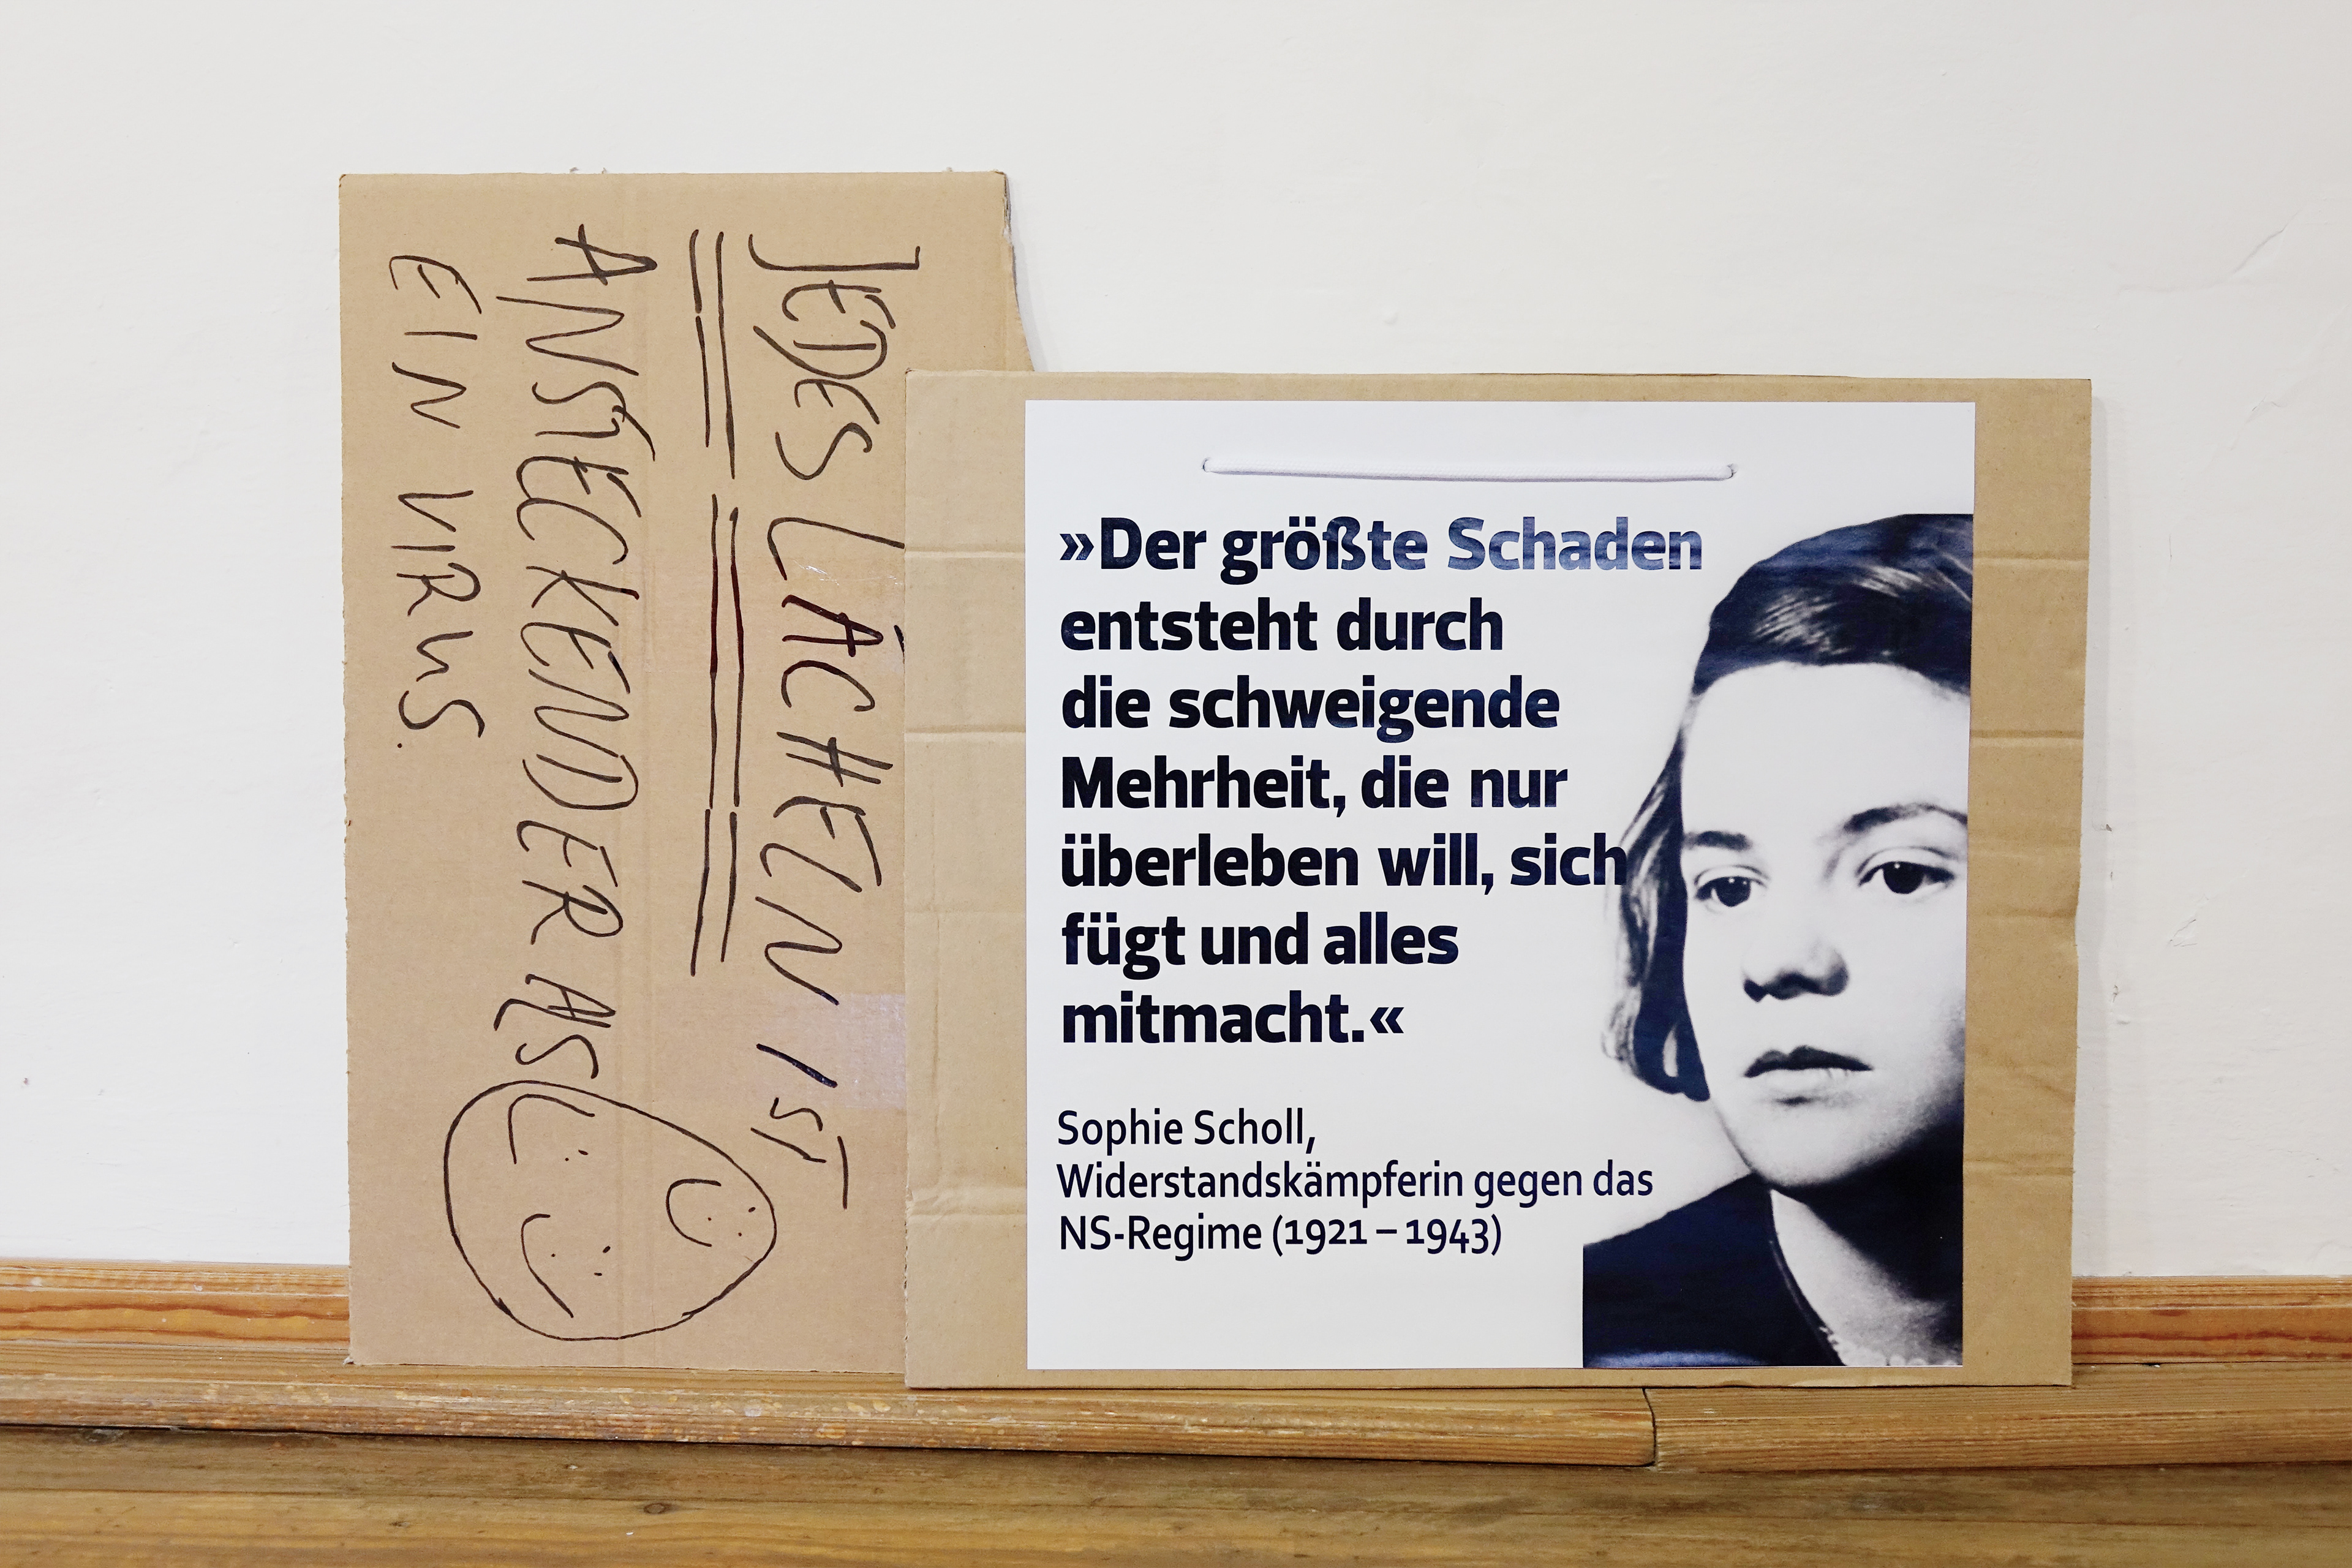 JEDES LÄCHELN IST
ANSTECKENDER ALS
EIN VIRUS.
»Der größte Schaden
entsteht durch
die schweigende
Mehrheit, die nur
überleben will, sich
fügt und alles
mitmacht.«
Sophie Scholl,
Widerstandskämpferin gegen das
NS-Regime (1921 – 1943)